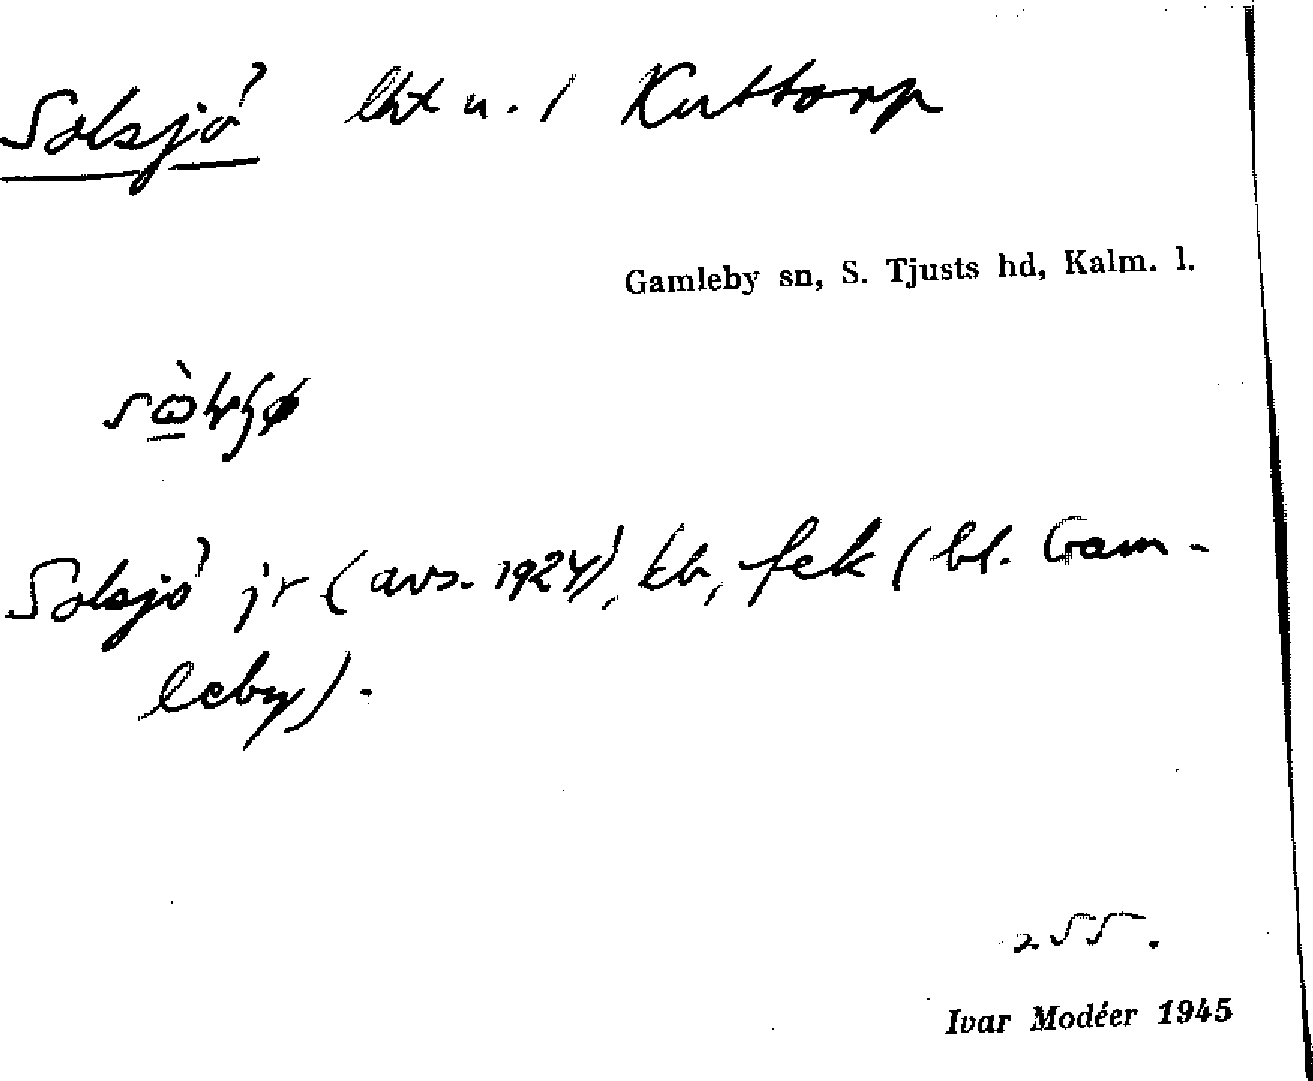 Solsjö lht u. 1 Kuttorp
Gamleby sn, S. Tjusts hd, Kalm. l.
Solsjö jr (avs. 1924), kb, fek (bl. Gam-
leby).
255.
Ivar Modéer 1945